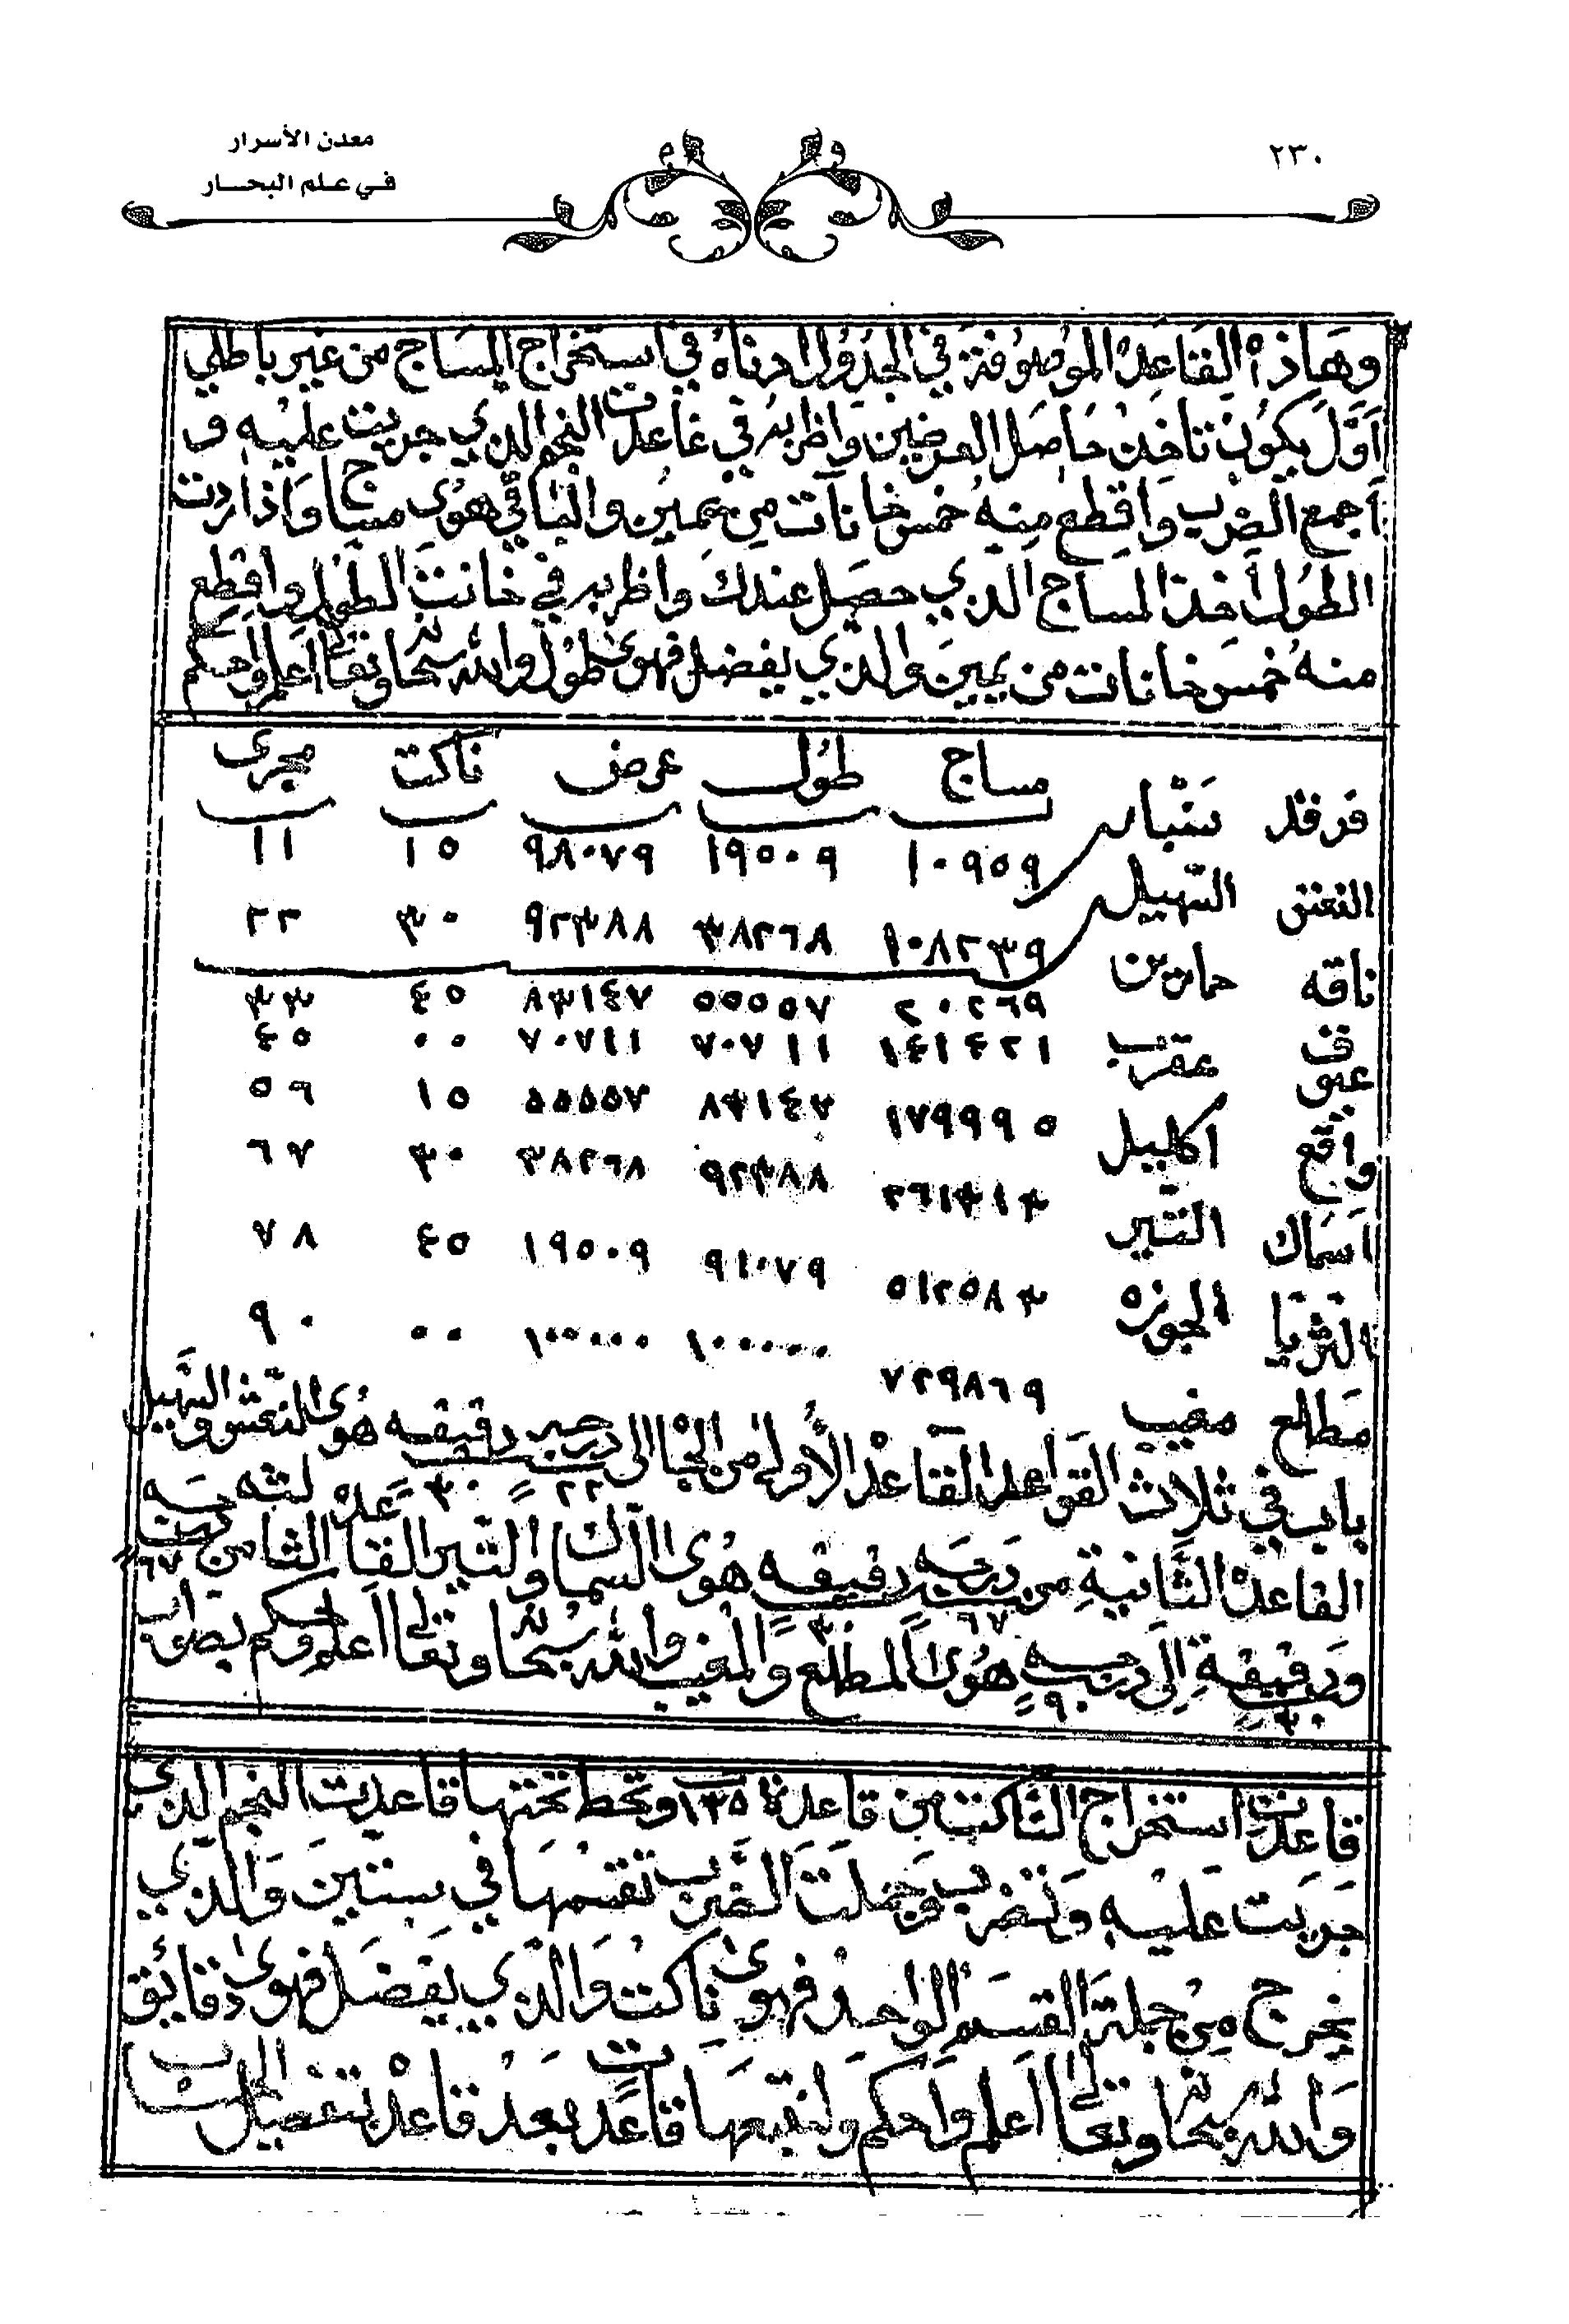 ٢٣٠
معدن الأسرار
في علم البحار
وهاذه القاعده الموصوفة في الجدول ادرناه في استخراج المساج من غير باطلي
اول يكون تاخذ حاصل العرضين واظربه في غاعدت النجم الذي جريت عليه و
اجمع الضرب واقطع منه خمس خانات من يمين والباقي هوى مساج واذا اردت
الطول اخذ المساج الذي حصل عندك واظربه في خانت الطول واقطع
منه خمس خانات من يمين والذي يفضل فهوى طول والله سبحانه وتعالى اعلم واحكم
مساج طول عرض ناكت مجرى
فرقد سنبار ١٠٩٥٩ ١٩٥٠٩ ٩٨٠٧٩ ١٥ ١١
النعش السهيل ١٠٨٢٣٩ ٣٨٢٦٨ ٩٢٣٨٨ ٣٠ ٢٢
ناقه حمارين ٢٠٢٦٩ ٥٥٥٥٧ ٨٣١٤٧ ٤٥ ٣٣
عيوق عقرب ١٤١٤٢١ ٧٠٧١١ ٧٠٧١١ ٠٠ ٤٥
واقع اكليل ١٧٩٩٩٥ ٨٣١٤٧ ٥٥٥٥٧ ١٥ ٥٦
اسماك التير ٢٦١٣١٣ ٩٢٣٨٨ ٣٨٢٦٨ ٣٠ ٦٧
الثريا الجوزه ٥١٢٥٨٣ ٩١٠٧٩ ١٩٥٠٩ ٤٥ ٧٨
مطلع مغيب ٧٢٩٨٦٩ ١٠٠٠٠٠ ١٠٠٠٠٠ ٠٠ ٩٠
باب في ثلاث القواعد القاعده الأولى من الجا الى درجه ٢٢ دقيقه ٣٠ هوى النعش والسهيل
القاعده الثانية من درجه ٦٧ دقيقه ٣٠ هوى السماك والتير القاعده الثالثه من درجه ٦٧
ودقيقة ٣٠ إلى درجه ٩٠ هوى المطلع والمغيب والله سبحانه وتعالى اعلم واحكم بصواب
قاعدت استخراج الناكت من قاعدة ١٣٥ وتحط تحتها قاعدت النجم الذي
جريت عليه وتضرب وجملت الضرب تقسمها في ستين والذي
يخرج من جملة القسم الواحد فهوى ناكت والذي يفضل فهوى دقايق
والله سبحانه وتعالى اعلم واحكم ولنتبعها قاعدت بعد قاعده بتفصيل الحساب